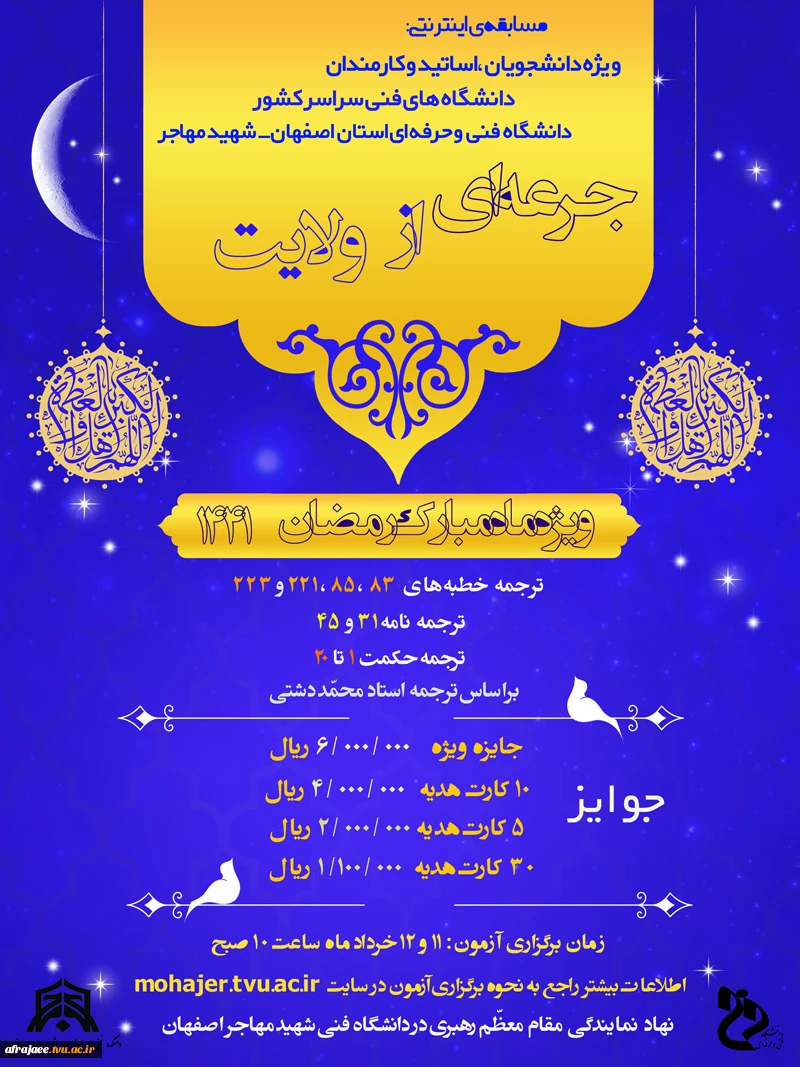 مسابقه‌ی اینترنتی:
ویژه دانشجویان ،اساتید و کارمندان
دانشگاه های فنی سراسر کشور
دانشگاه فنی و حرفه ای استان اصفهان_ شهید مهاجر
جرعه‌ای از ولایت
ویژه ماه مبارک رمضان ۱۴۴۱
ترجمه خطبه های ۸۳ ،۸۵ ،۲۲۱ و ۲۲۳
ترجمه نامه ۳۱ و ۴۵
ترجمه حکمت ۱ تا ۲۰
براساس ترجمه استاد محمّد دشتی
جوایز
جایزه ویژه ۶/۰۰۰/۰۰۰ ریال
۱۰ کارت هدیه ۴/۰۰۰/۰۰۰ ریال
۵ کارت هدیه ۲/۰۰۰/۰۰۰ ریال
۳۰ کارت هدیه ۱/۱۰۰/۰۰۰ ریال
زمان برگزاری آزمون: ۱۱ و ۱۲ خرداد ماه ساعت ۱۰ صبح
اطلاعات بیشتر راجع به نحوه برگزاری آزمون در سایت mohajer.tvu.ac.ir
نهاد نمایندگی مقام معظّم رهبری در دانشگاه فنی شهید مهاجر اصفهان
afrajaee.tvu.ac.ir